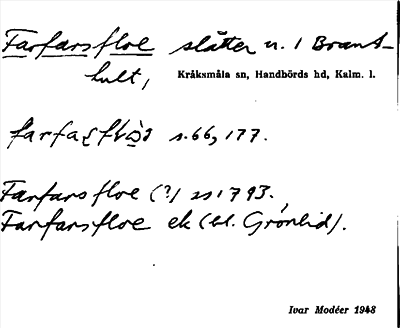 Farfarsfloe slåtter n. 1 Brant-
hult,
Kråksmåla sn, Handbörds hd, Kalm. l.
s. 66, 177.
Farfarsfloe (?) 1793,
Farfarsfloe ek (bl. Grönlid).
Ivar Modéer 1948